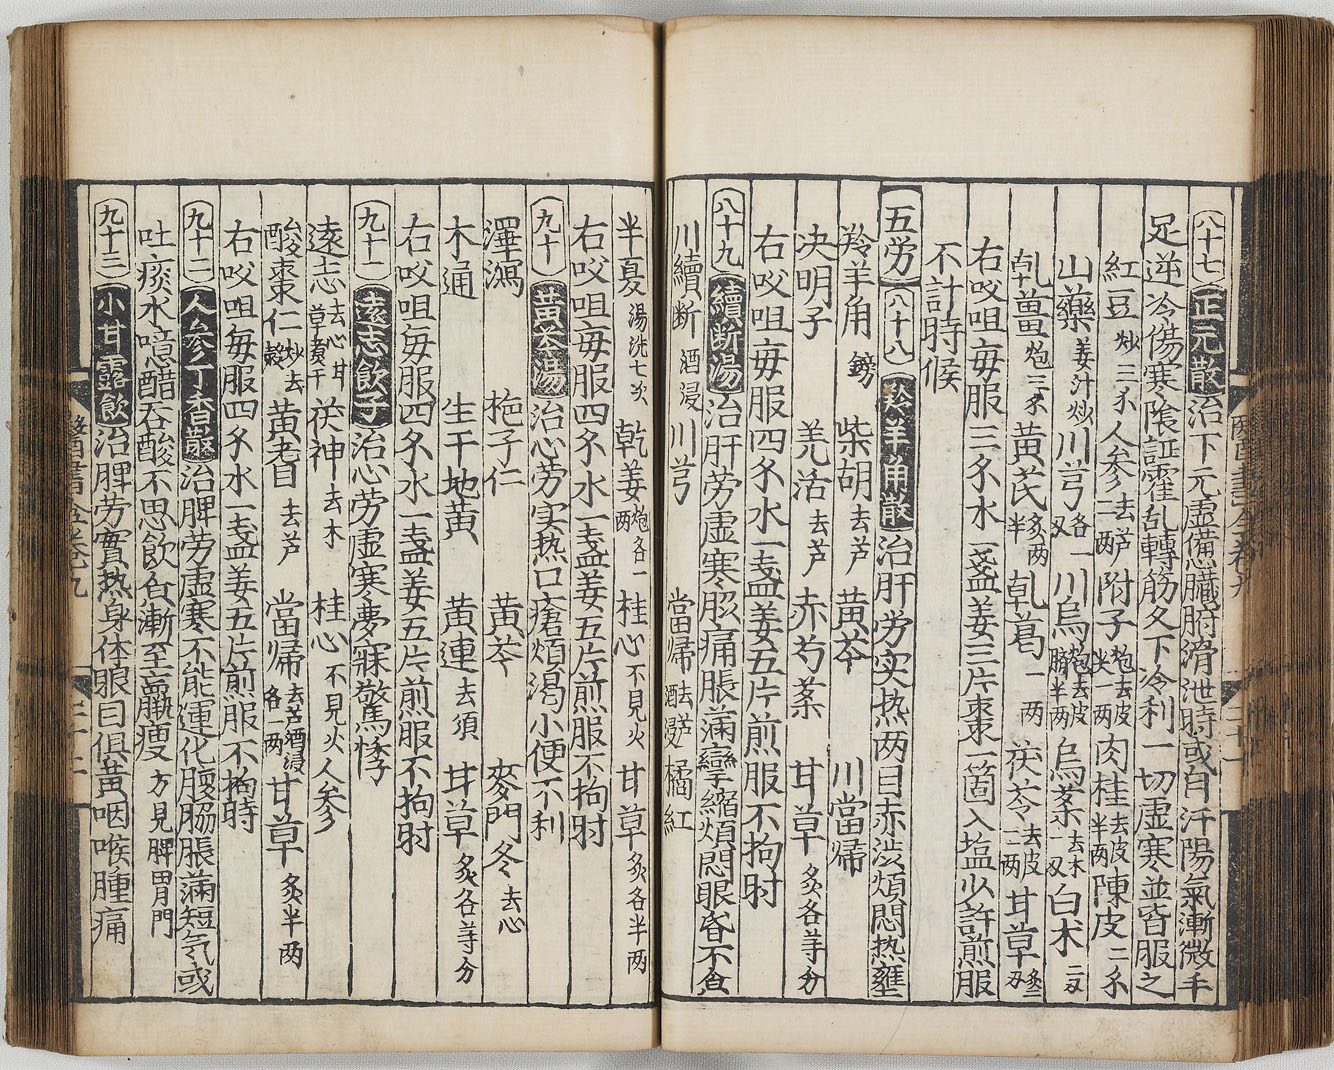 八十七 正元散 治下元虚備臓腑滑泄時或自汗陽氣漸微手
足逆冷傷寒陰証霍乱轉筋久下冷利一切虚寒並皆服之
紅豆 炒三分 人参二去芦两 附子炮去皮尖一两 肉桂去皮半两 陳皮二分
山藥姜汁炒 川芎各一两 川烏炮去皮臍半两 烏藥去木一两 白术二两
乹薑炮三分 黄芪炙两半 乹葛一两 茯苓去皮二两 甘草炙二两
右㕮咀毎服三分水一盞姜三片棗一箇入塩少許煎服
不計時候
五労 八十八 羚羊角散 治肝労实热两目赤渋煩悶热壅
羚羊角 鎊 柴胡 去芦 黄芩 川當歸
决明子 羌活 去芦 赤芍薬 甘草 炙各等分
右㕮咀毎服四分水一盞姜五片煎服不拘时
八十九 續断湯 治肝劳虚寒胲痛脹滿攣縮煩悶眼昏不食
川續断 酒浸 川芎 當帰 去芦酒浸 橘紅
半夏 湯洗七次 乾姜炮各一两 桂心 不見火 甘草 炙各半两
右㕮咀毎服四分水一盞姜五片煎服不拘时
九十 黄芩湯 治心劳实热口瘡煩渴小便不利
澤瀉 栀子仁 黄芩 麥門冬 去心
木通 生干地黄 黄連 去須 甘草 炙各等分
右㕮咀毎服四分水一盞姜五片煎服不拘时
九十一 遠志飲子 治心劳虚寒夢寐驚悸
遠志去心甘草煮干 茯神 去木 桂心 不見火 人参
酸棗仁炒去殻 黄耆 去芦 當帰去芦酒浸各一两 甘草 炙半两
右㕮咀每服四分水一盞姜五片煎服不拘時
九十二 人参丁香散 治脾劳虚寒不能運化腹脇脹滿短气或
吐痰水噫醋吞酸不思飲食漸至羸瘦 方見脾胃門
九十三 小甘露飲 治脾劳實热身体眼目俱黄咽喉腫痛
醫書全卷九